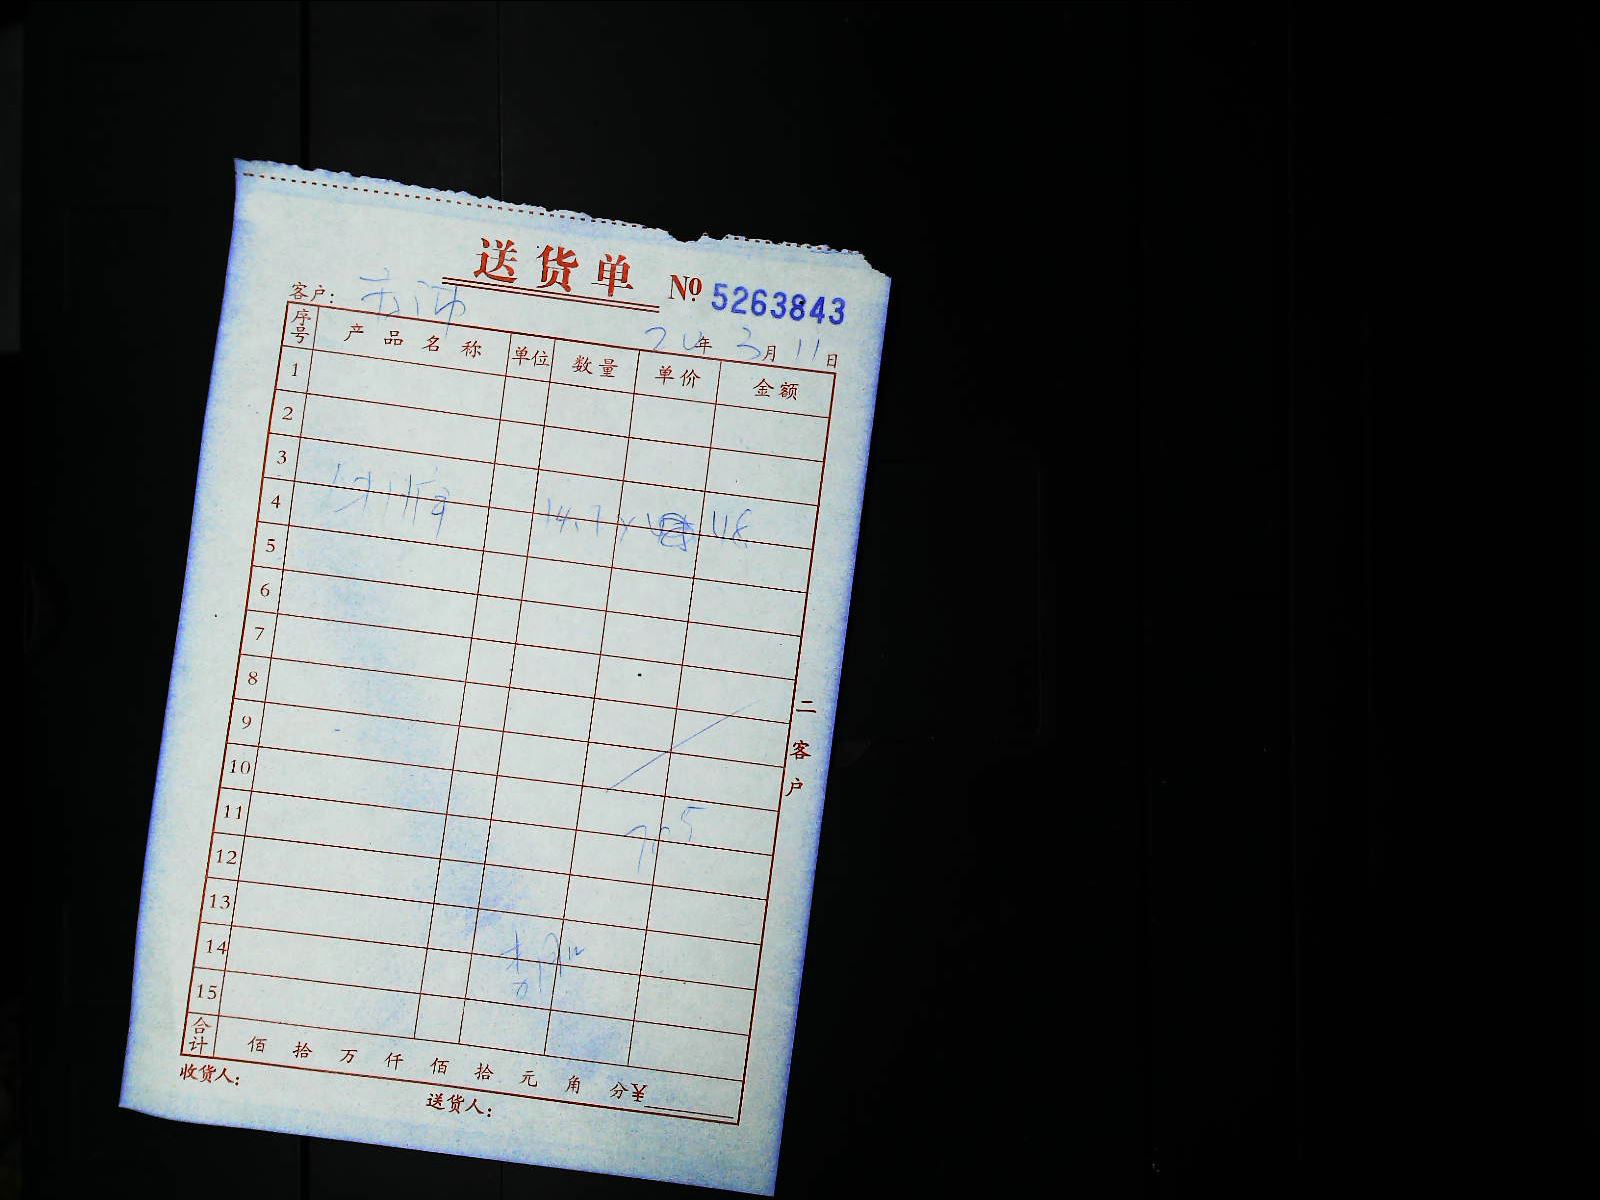 送货单 № 5263843
客户:
年 3月 11日
序号 产品名称 单位 数量 单价 金额
1
2
3
4 14.7 ×
5
6
7
8
9
10
11
12
13
14
15
合计 佰 拾 万 仟 佰 拾 元 角 分 ¥
收货人: 送货人:
二客户